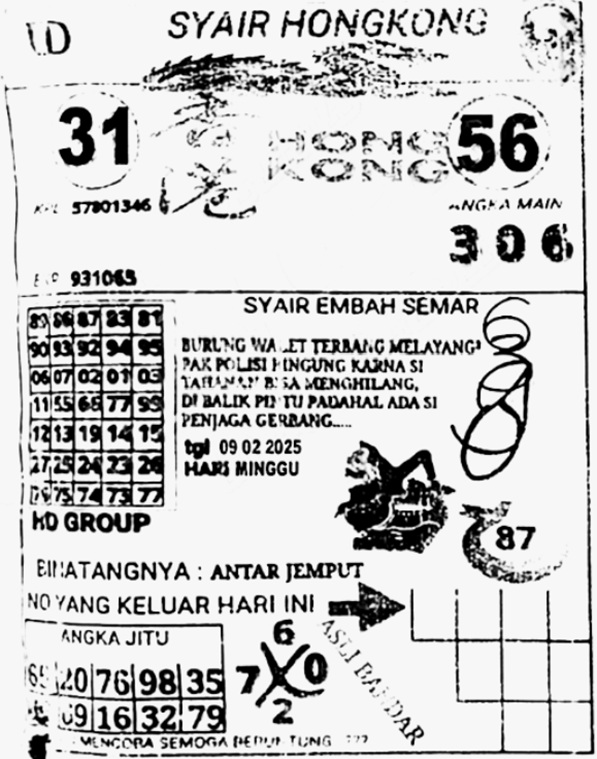 SYAIR HONGKONG
31
HONG
KONG
56
57801346
ANGKA MAIN
306
931065
SYAIR EMBAH SEMAR
89 86 87 83 81
90 93 92 94 95
06 07 02 01 03
11 55 66 77 99
12 13 19 14 15
27 25 24 23 26
79 75 74 73 77
BURUNG WALET TERBANG MELAYANG
PAK POLISI BINGUNG KARNA SI
TAHANAN BISA MENGHILANG,
DI BALIK PINTU PADAHAL ADA SI
PENJAGA GERBANG.....
tgl 09 02 2025
HARI MINGGU
HD GROUP
87
BINATANGNYA : ANTAR JEMPUT
NO YANG KELUAR HARI INI
ANGKA JITU
20 76 98 35
69 16 32 79
6
7 0
2
ASLI BANDAR
MENCOBA SEMOGA BERUNTUNG